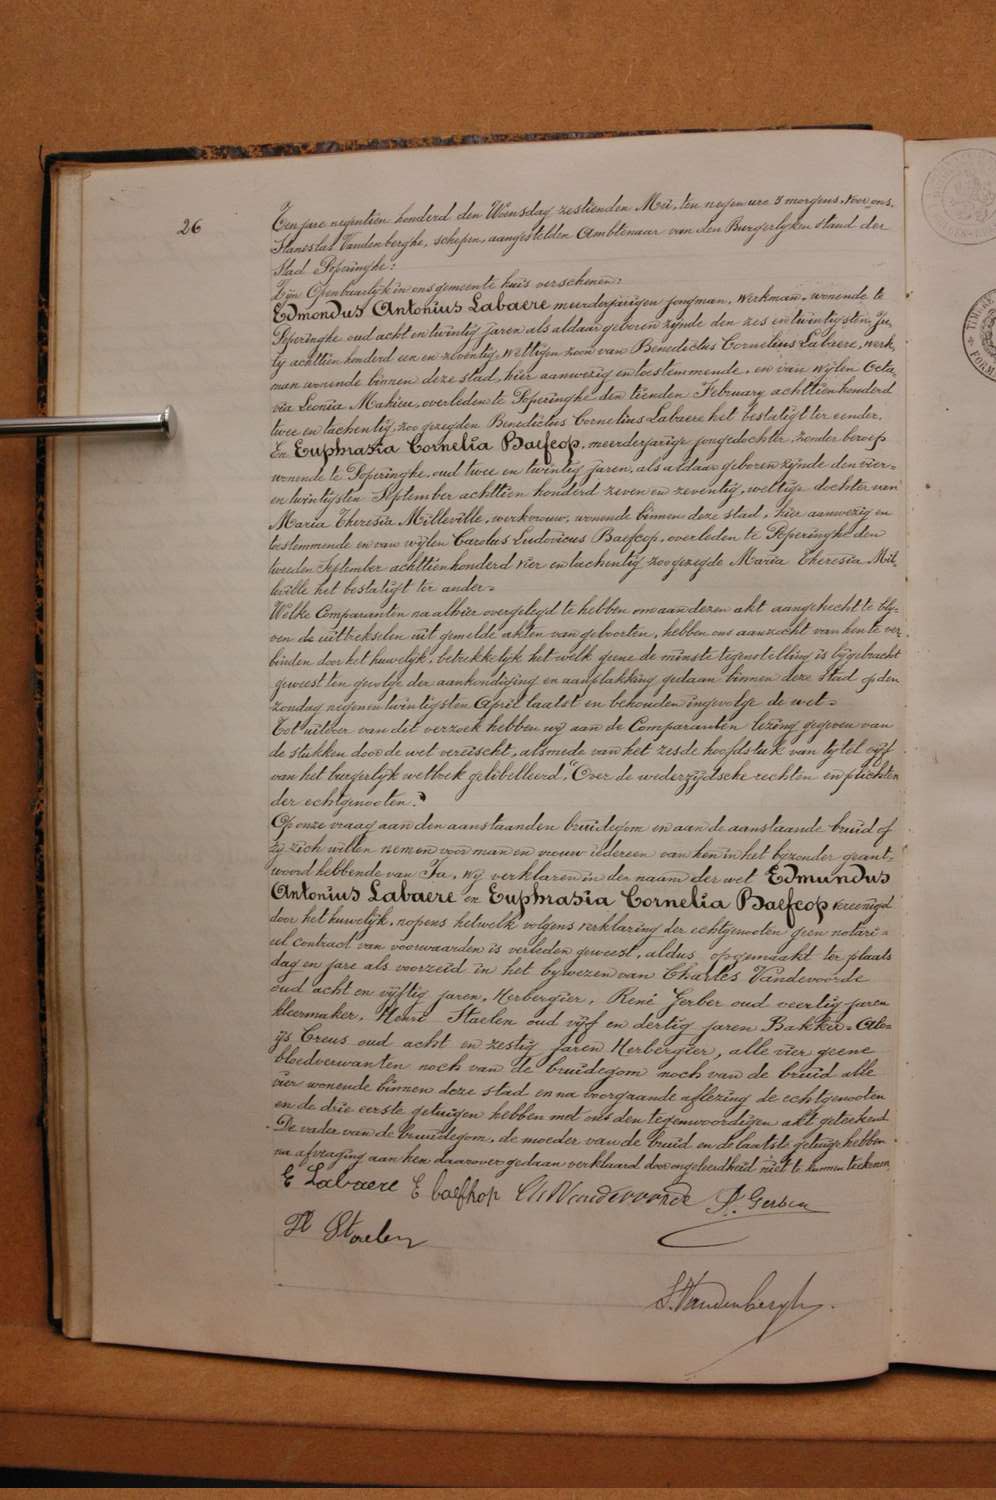 26
Ten jare negentien honderd den Woensdag zestienden Mei, ten negen ure 's morgens, voor ons,
Stanislas Vandenberghe, schepen, aangestelden Ambtenaar van den Burgerlyken stand der
Stad Poperinghe:
Zijn Openbaarlyk in ons gemeente huis verschenen:
Edmondus Antonius Labaere meerderjarigen jongman, werkman, wonende te
Poperinghe oud acht en twintig jaren als aldaar geboren zijnde den zes en twintigsten Ju-
ly achttien honderd een en zeventig, wettigen zoon van Benedictus Cornelius Labaere, werk-
man wonende binnen deze stad, hier aanwezig en toestemmende, en van wijlen Octa-
via Leonia Mahieu, overleden te Poperinghe den tienden February achttienhonderd
twee en tachentig, zoo gezegden Benedictus Cornelius Labaere het bestatigt ter eender.
En Euphrasia Cornelia Baefcop, meerderjarige jongedochter zonder beroep
wonende te Poperinghe, oud twee en twintig jaren, als aldaar geboren zijnde den vier-
en twintigsten September achttien honderd zeven en zeventig, wettige dochter van
Maria Theresia Milleville, werkvrouw, wonende binnen deze stad, hier aanwezig en
toestemmende en van wijlen Carolus Ludovicus Baefcop, overleden te Poperinghe den
tweeden September achttienhonderd vier en tachentig zoo gezegde Maria Theresia Mil-
leville het bestatigt ter ander.
Welke Comparanten na alhier overgelegd te hebben om aan dezen akt aangehecht te bly-
ven de uittreksels uit gemelde akten van geboorten, hebben ons aanzocht van hen te ver-
binden door het huwelijk, betrekkelyk het welk geene de minste tegenstelling is bijgebracht
geweest ten gevolge der aankondiging en aanplakking gedaan binnen deze Stad op den
zondag negen en twintigsten April laatst en behouden ingevolge de wet.
Tot uitvoer van dit verzoek hebben wij aan de Comparanten lezing gegeven van
de stukken door de wet vereischt, alsmede van het zesde hoofdstuk van tytel vijf
van het burgerlyk wetboek gelibelleerd, "Over de wederzijdsche rechten en plichten
der echtgenooten."
Op onze vraag aan den aanstaanden bruidegom en aan de aanstaande bruid of
zy zich willen nemen voor man en vrouw iedereen van hen in het byzonder geant-
woord hebbende van Ja, wij verklaren in der naam der wet Edmundus
Antonius Labaere en Euphrasia Cornelia Baefcop vereenigd
door het huwelijk, nopens hetwelk volgens verklaring der echtgenooten geen notari-
eel contract van voorwaarden is verleden geweest, aldus opgemaakt ter plaats
dag en jare als voorzeid in het bywezen van Charles Vandevoorde
oud acht en vijftig jaren, Herbergier, René Gerber oud veertig jaren
kleermaker, Henri Staelen oud vijf en dertig jaren Bakker, Alo-
ijs Creus oud acht en zestig jaren Herbergier, alle vier geene
bloedverwanten noch van de bruidegom noch van de bruid alle
vier wonende binnen deze stad en na voorgaande aflezing de echtgenooten
en de drie eerste getuigen hebben met ons den tegenwoordigen akt geteekend
De vader van de bruidegom, de moeder van de bruid en de laatste getuige hebben
na afvraging aan hen daarover gedaan verklaard door ongeleerdheid niet te kunnen teekenen.
E Labaere E baefkop Ch Vandevoorde R. Gerber
H Staelen
S. Vandenberghe